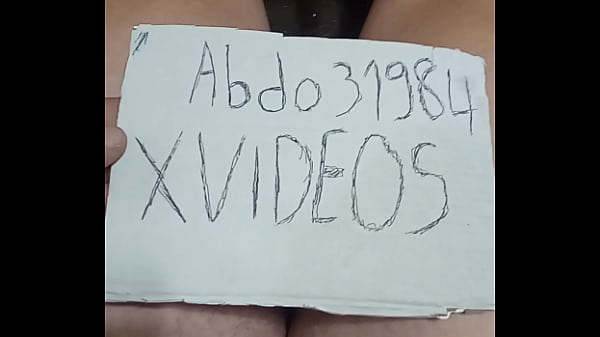 Abdo31984
XVIDEOS